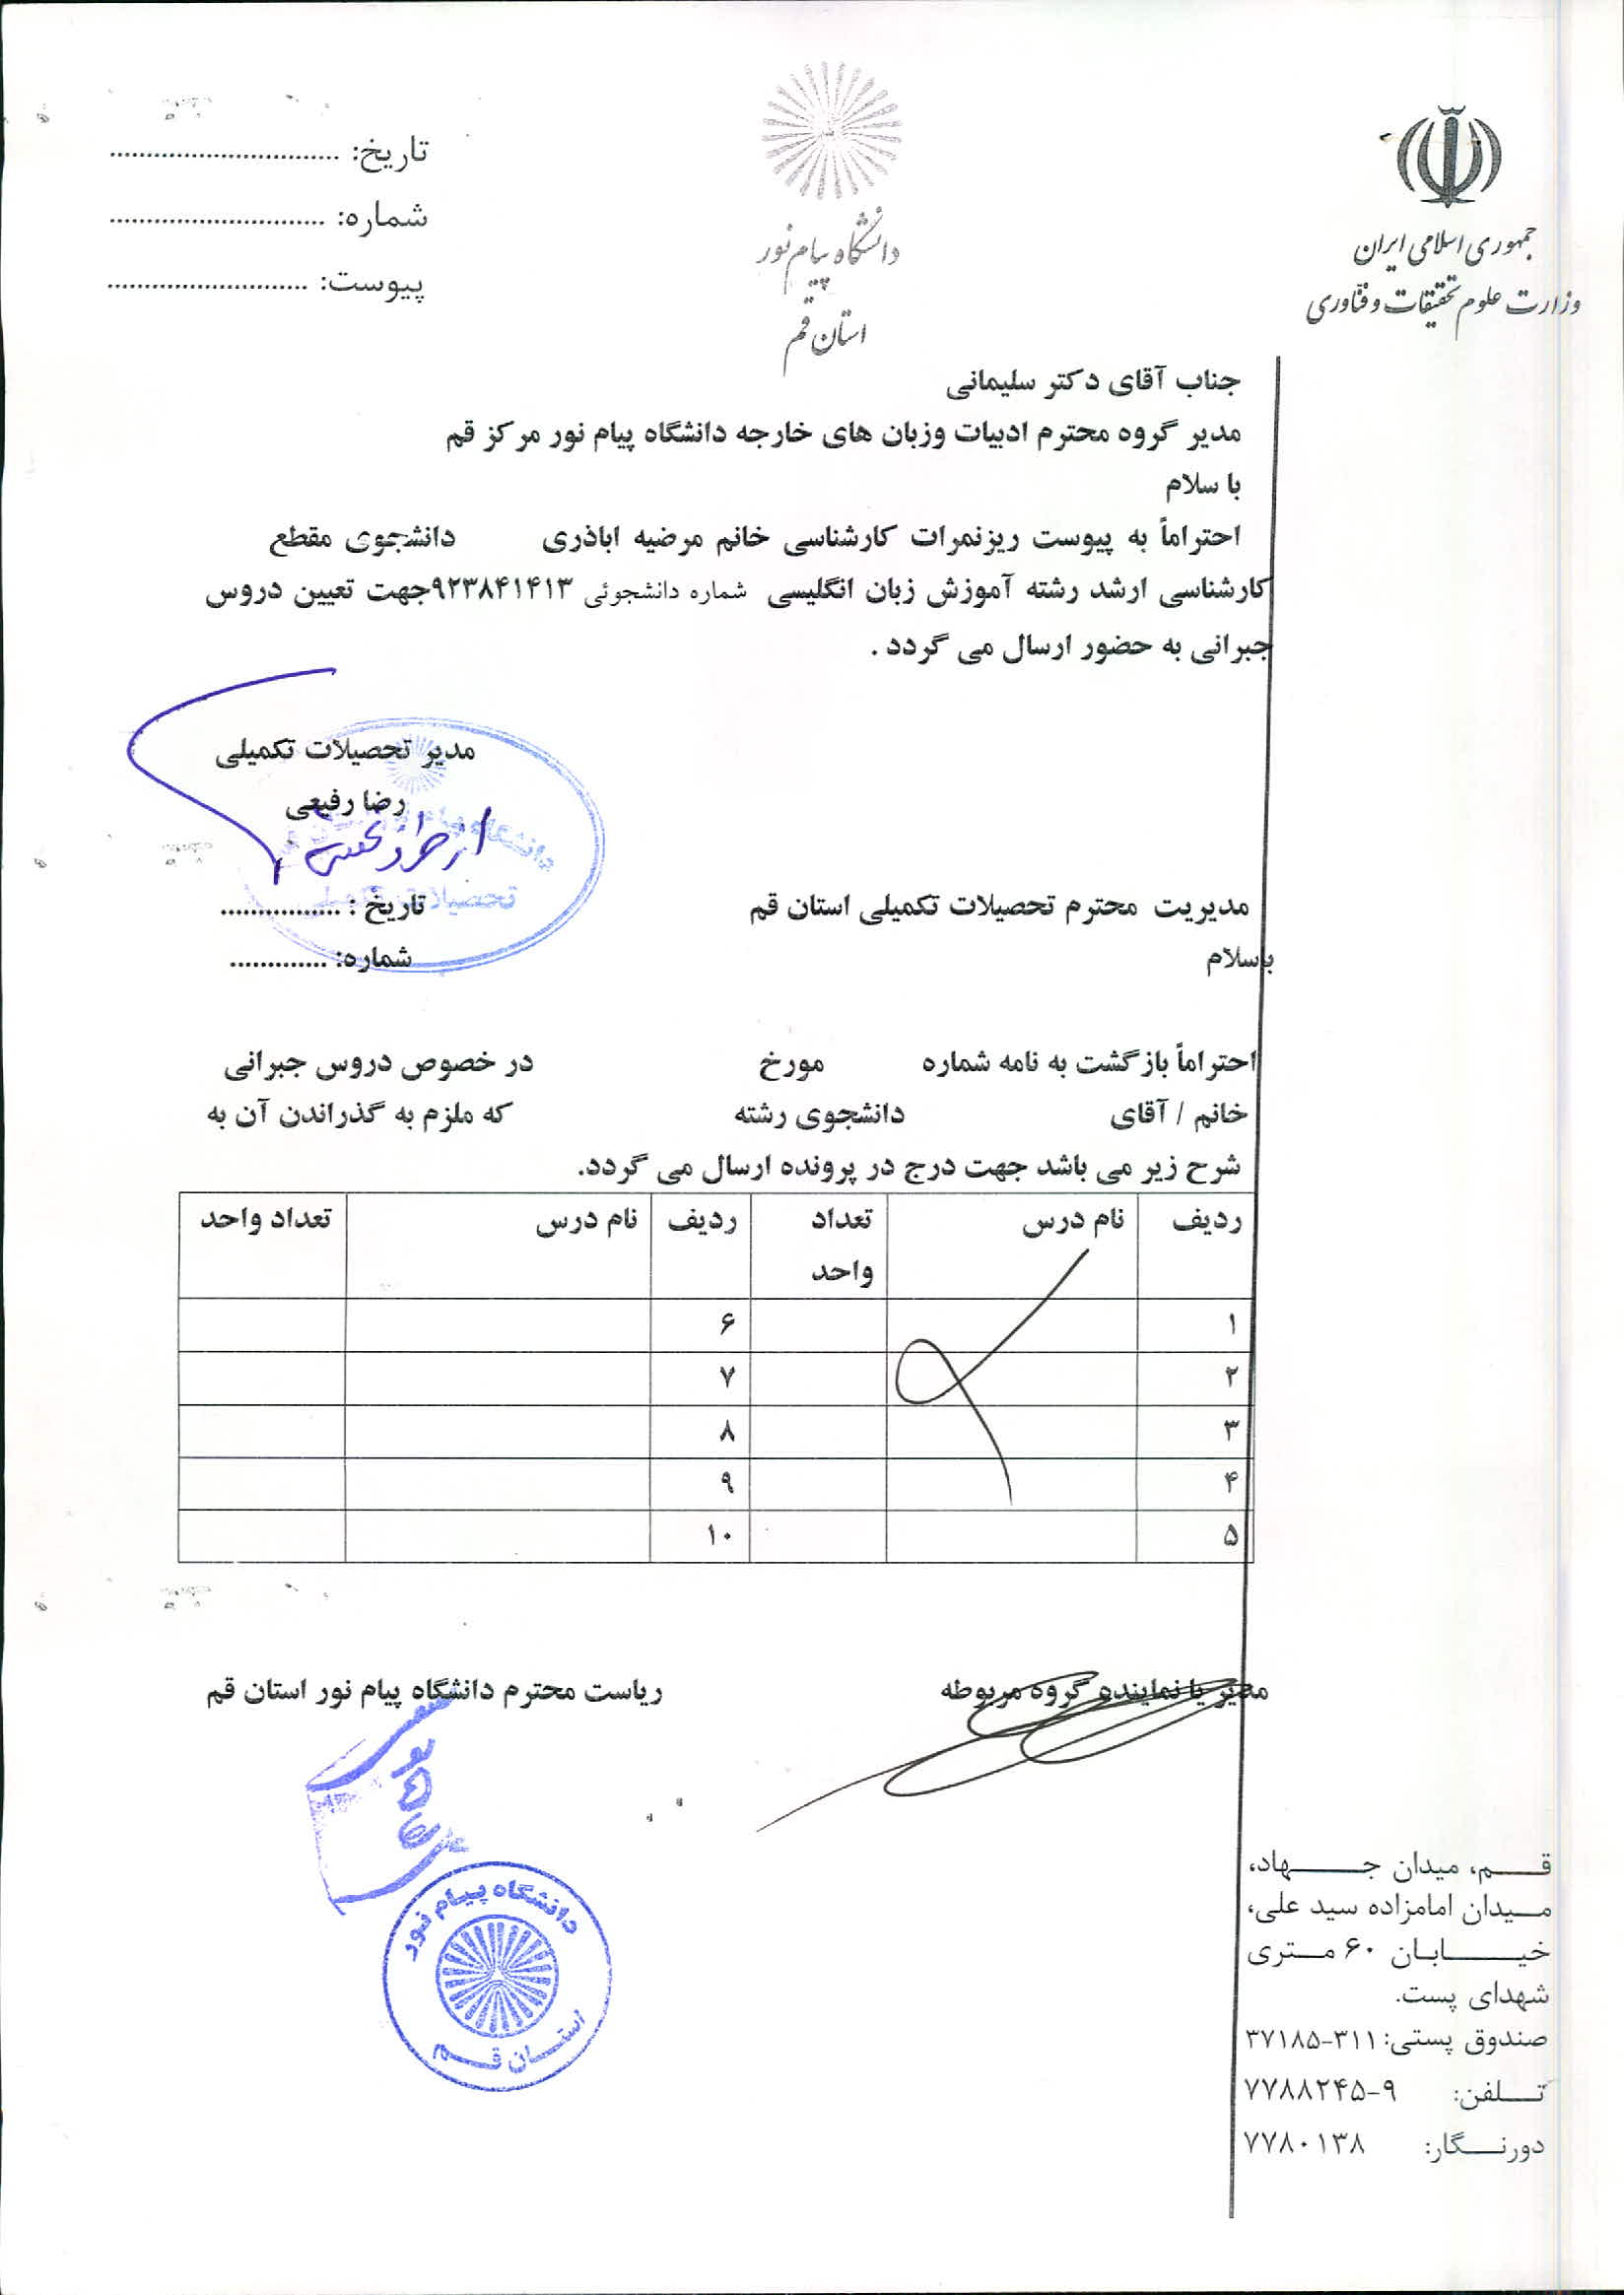 جمهوری اسلامی ایران
وزارت علوم تحقیقات و فناوری
دانشگاه پیام نور
استان قم
تاریخ: ..............................
شماره: ..............................
پیوست: ..............................
جناب آقای دکتر سلیمانی
مدیر گروه محترم ادبیات وزبان های خارجه دانشگاه پیام نور مرکز قم
با سلام
احتراماً به پیوست ریزنمرات کارشناسی خانم مرضیه اباذری دانشجوی مقطع
کارشناسی ارشد رشته آموزش زبان انگلیسی شماره دانشجوئی ۹۲۳۸۴۱۴۱۳جهت تعیین دروس
جبرانی به حضور ارسال می گردد .
مدیر تحصیلات تکمیلی
رضا رفیعی
مدیریت محترم تحصیلات تکمیلی استان قم
تاریخ : ................
باسلام
شماره: .............
احتراماً بازگشت به نامه شماره مورخ در خصوص دروس جبرانی
خانم / آقای دانشجوی رشته که ملزم به گذراندن آن به
شرح زیر می باشد جهت درج در پرونده ارسال می گردد.
ردیف نام درس تعداد واحد ردیف نام درس تعداد واحد
۱ ۶
۲ ۷
۳ ۸
۴ ۹
۵ ۱۰
مدیر یا نماینده گروه مربوطه
ریاست محترم دانشگاه پیام نور استان قم
دانشگاه پیام نور
استان قم
قم، میدان جهاد،
میدان امامزاده سید علی،
خیابان ۶۰ متری
شهدای پست.
صندوق پستی: ۳۱۱-۳۷۱۸۵
تلفن: ۹-۷۷۸۸۲۴۵
دورنگار: ۷۷۸۰۱۳۸